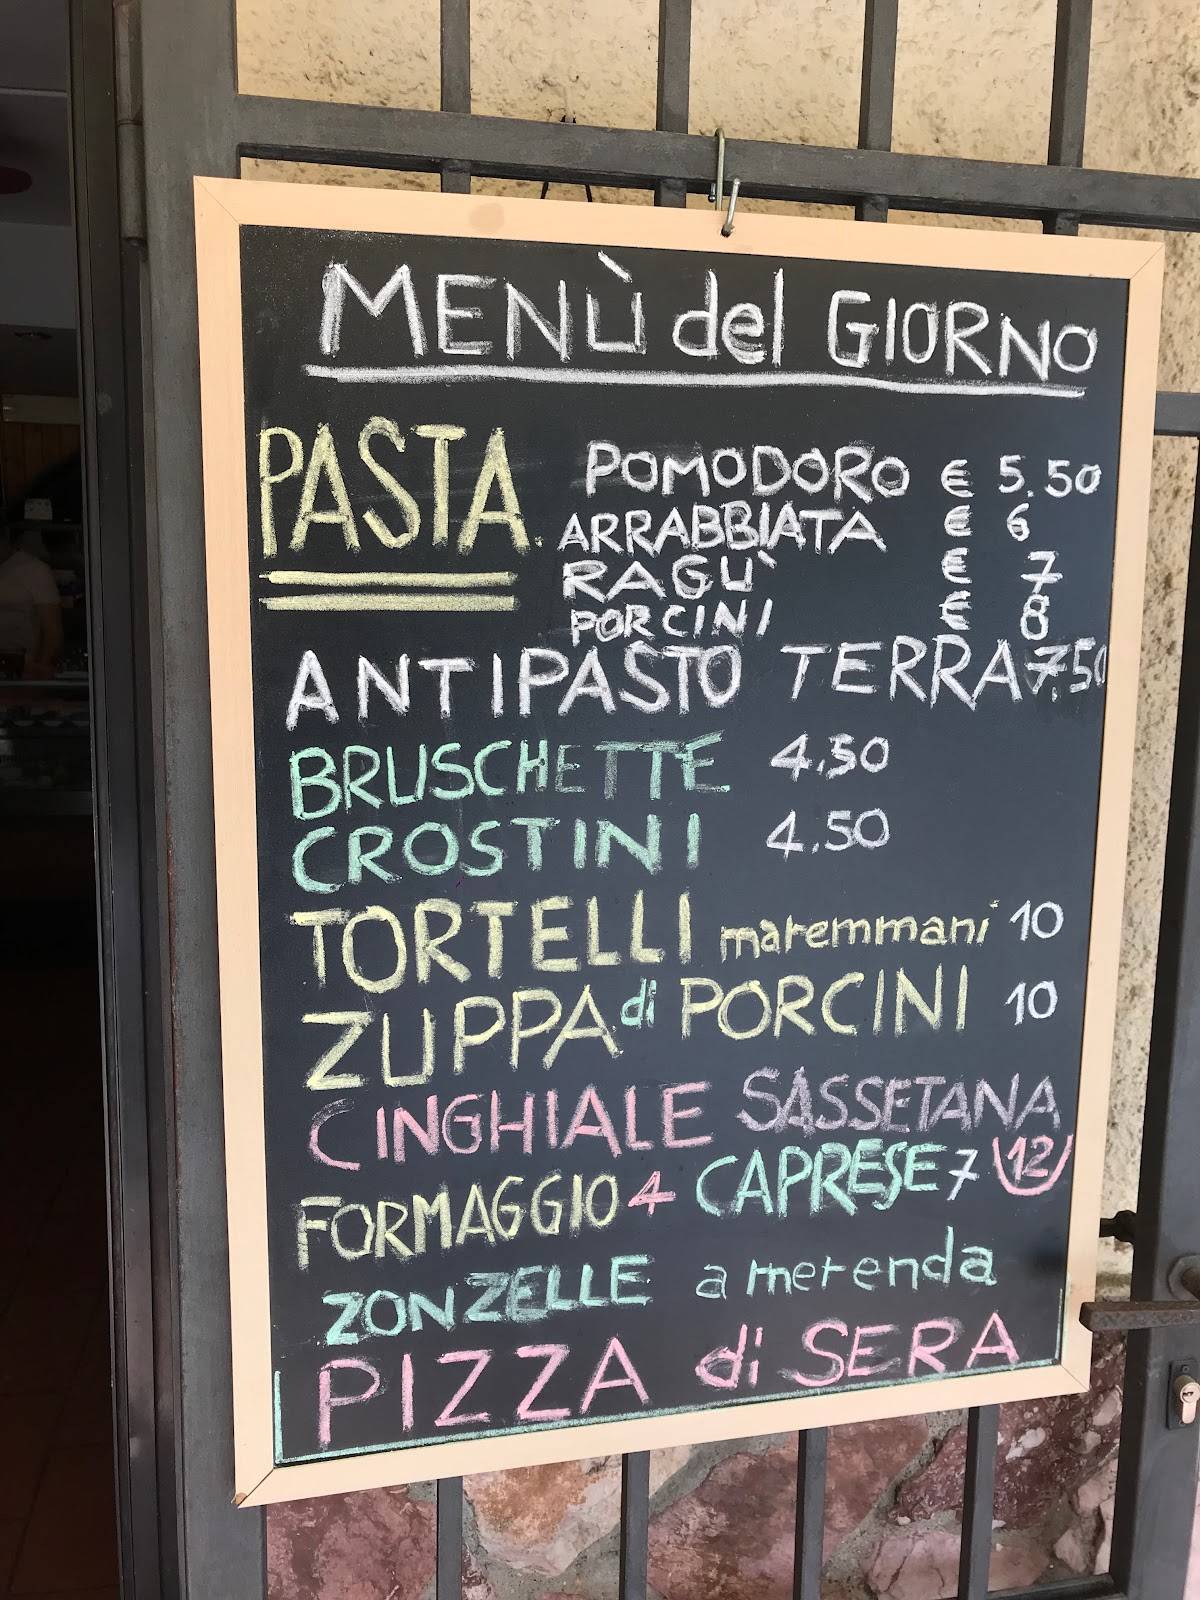 MENÙ del GIORNO
PASTA. POMODORO € 5.50
ARRABBIATA € 6
RAGÙ € 7
PORCINI € 8
ANTIPASTO TERRA 7,50
BRUSCHETTE 4.50
CROSTINI 4.50
TORTELLI maremmani 10
ZUPPA di PORCINI 10
CINGHIALE SASSETANA 12
FORMAGGIO 4 CAPRESE 7
ZONZELLE a merenda
PIZZA di SERA